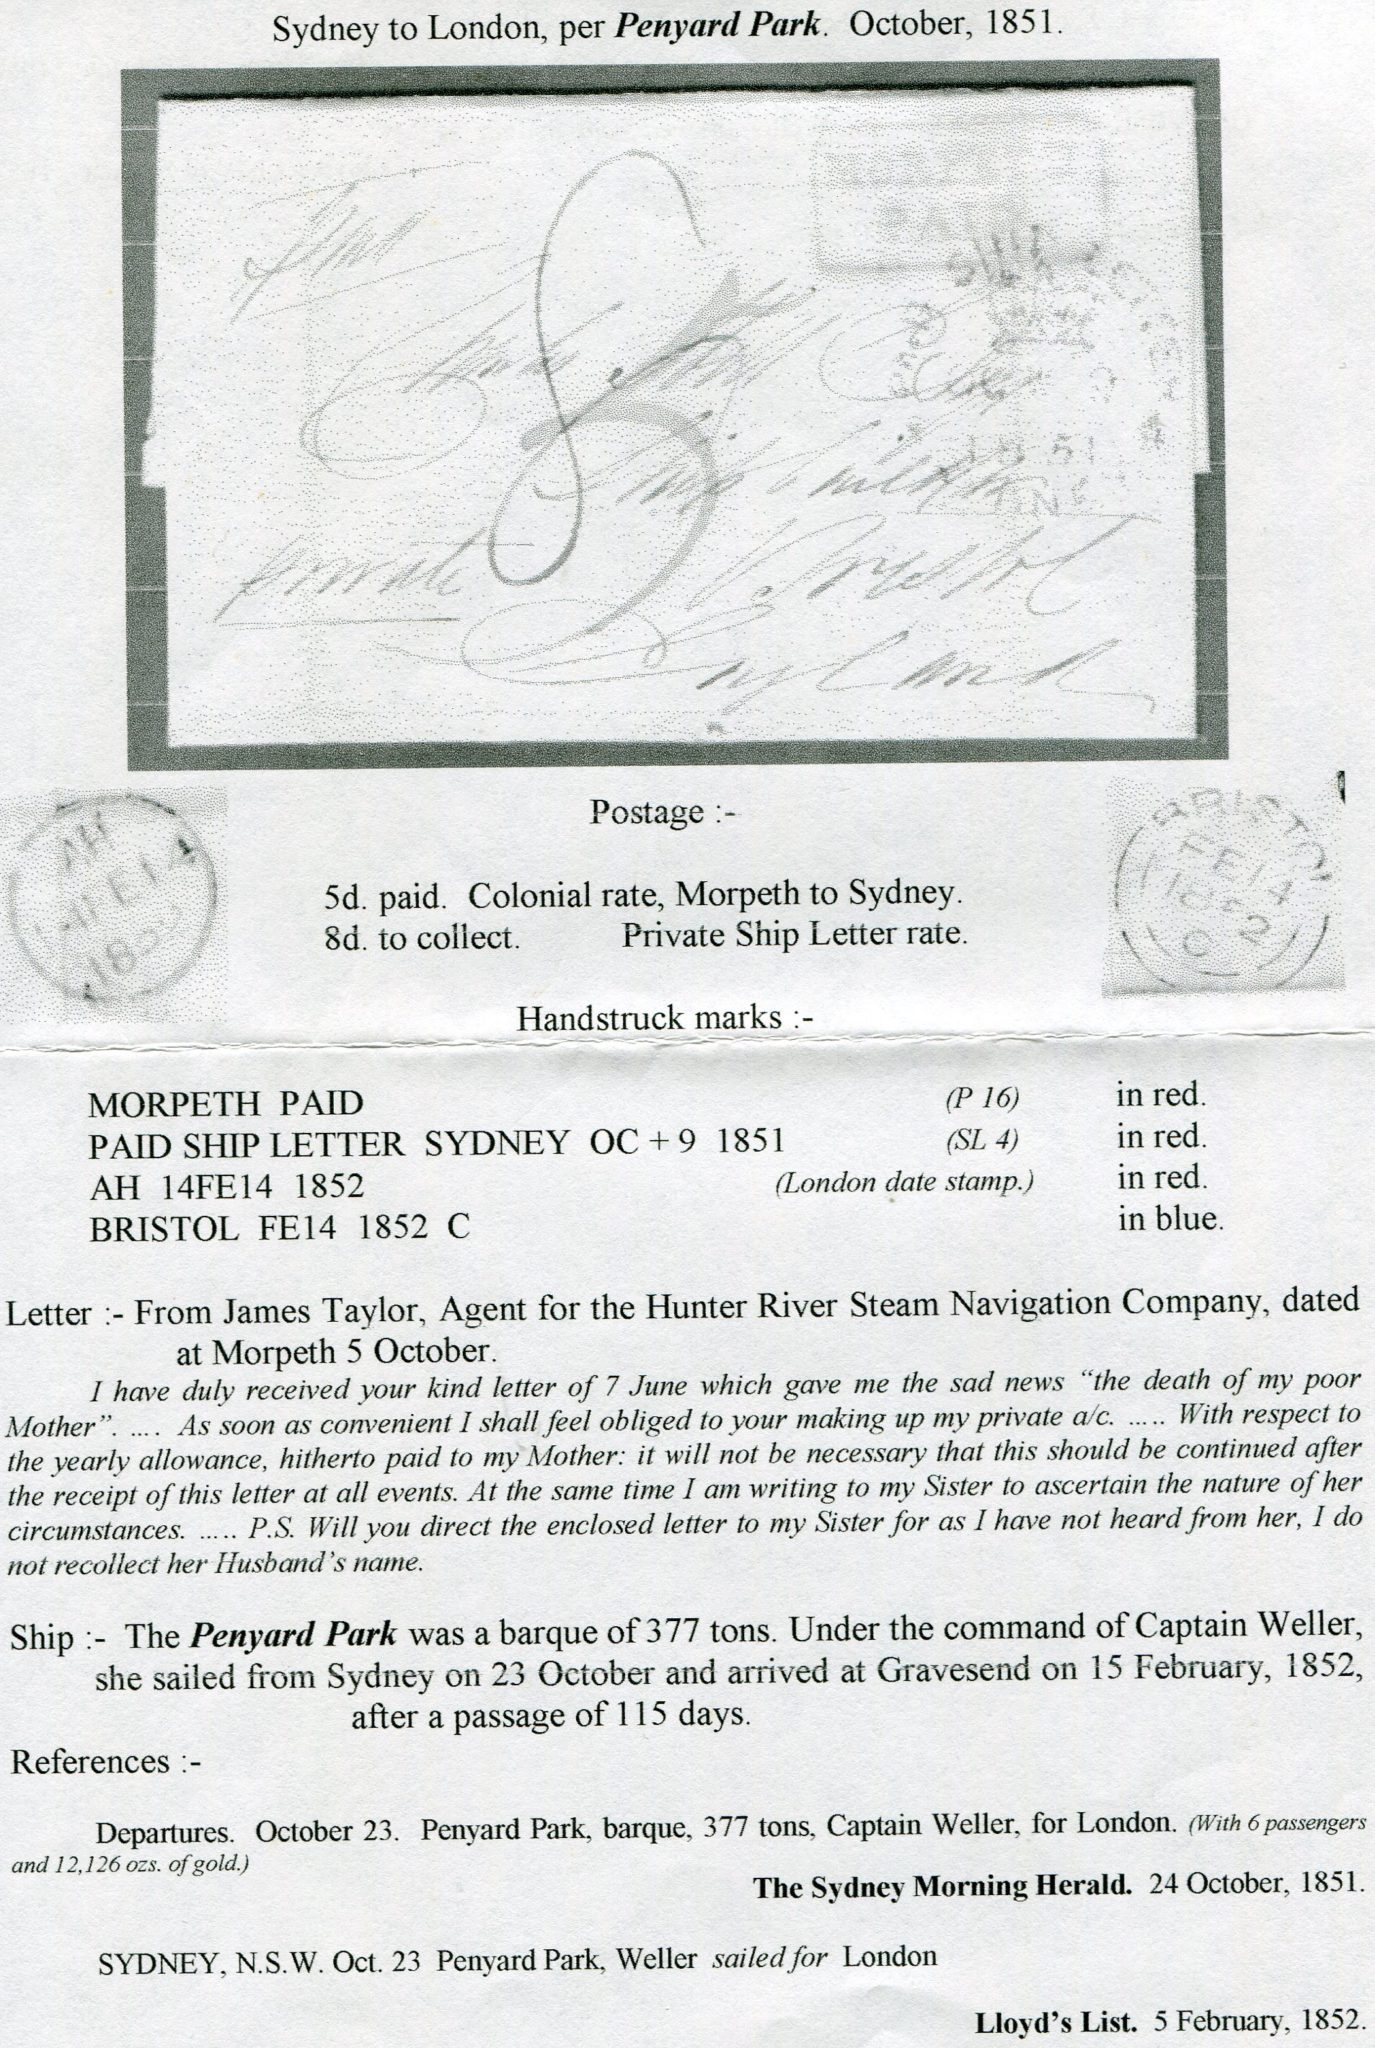 Sydney to London, per Penyard Park. October, 1851.
Private
Bristol
England
Postage :-
AH
14FE14
185
BRISTOL
FE14
1852
C
5d. paid. Colonial rate, Morpeth to Sydney.
8d. to collect. Private Ship Letter rate.
Handstruck marks :-
MORPETH PAID (P 16) in red.
PAID SHIP LETTER SYDNEY OC + 9 1851 (SL 4) in red.
AH 14FE14 1852 (London date stamp.) in red.
BRISTOL FE14 1852 C in blue.
Letter :- From James Taylor, Agent for the Hunter River Steam Navigation Company, dated
at Morpeth 5 October.
I have duly received your kind letter of 7 June which gave me the sad news “the death of my poor
Mother”. .... As soon as convenient I shall feel obliged to your making up my private a/c. ..... With respect to
the yearly allowance, hitherto paid to my Mother: it will not be necessary that this should be continued after
the receipt of this letter at all events. At the same time I am writing to my Sister to ascertain the nature of her
circumstances. ..... P.S. Will you direct the enclosed letter to my Sister for as I have not heard from her, I do
not recollect her Husband’s name.
Ship :- The Penyard Park was a barque of 377 tons. Under the command of Captain Weller,
she sailed from Sydney on 23 October and arrived at Gravesend on 15 February, 1852,
after a passage of 115 days.
References :-
Departures. October 23. Penyard Park, barque, 377 tons, Captain Weller, for London. (With 6 passengers
and 12,126 ozs. of gold.)
The Sydney Morning Herald. 24 October, 1851.
SYDNEY, N.S.W. Oct. 23 Penyard Park, Weller sailed for London
Lloyd’s List. 5 February, 1852.